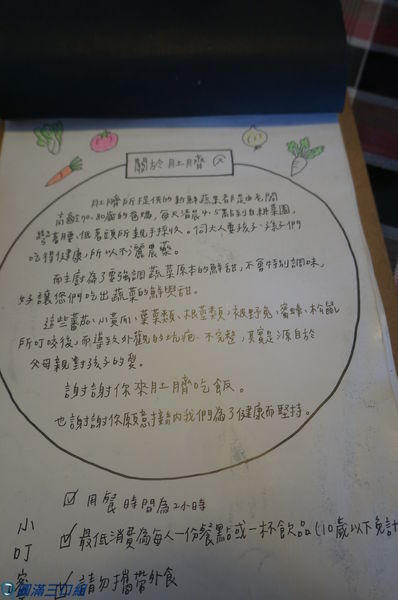 關於肚臍
肚臍所提供的新鮮蔬菜都是由老闆
高齡70、80歲的爸媽,每天清晨4、5點到自耕菜園,
彎著腰、低著頭所親手採收。何夫人要孩子、孫子們
吃得健康,所以不灑農藥。
而主廚為了要強調蔬菜原本的鮮甜,不會特別調味,
好讓您們吃出蔬菜的鮮與甜。
這些蕃茄、小黃瓜、葉菜類、根莖類、被野兔、蜜蜂、松鼠
所叮咬後,而導致外觀的坑疤、不完整,其實是源自於
父母親對孩子的愛。
謝謝你來肚臍吃飯。
也謝謝你願意接納我們為了健康而堅持。
小叮
用餐時間為2小時
最低消費為每人一份餐點或一杯飲品(10歲以下免計
請勿攜帶外食
圓滿三口組